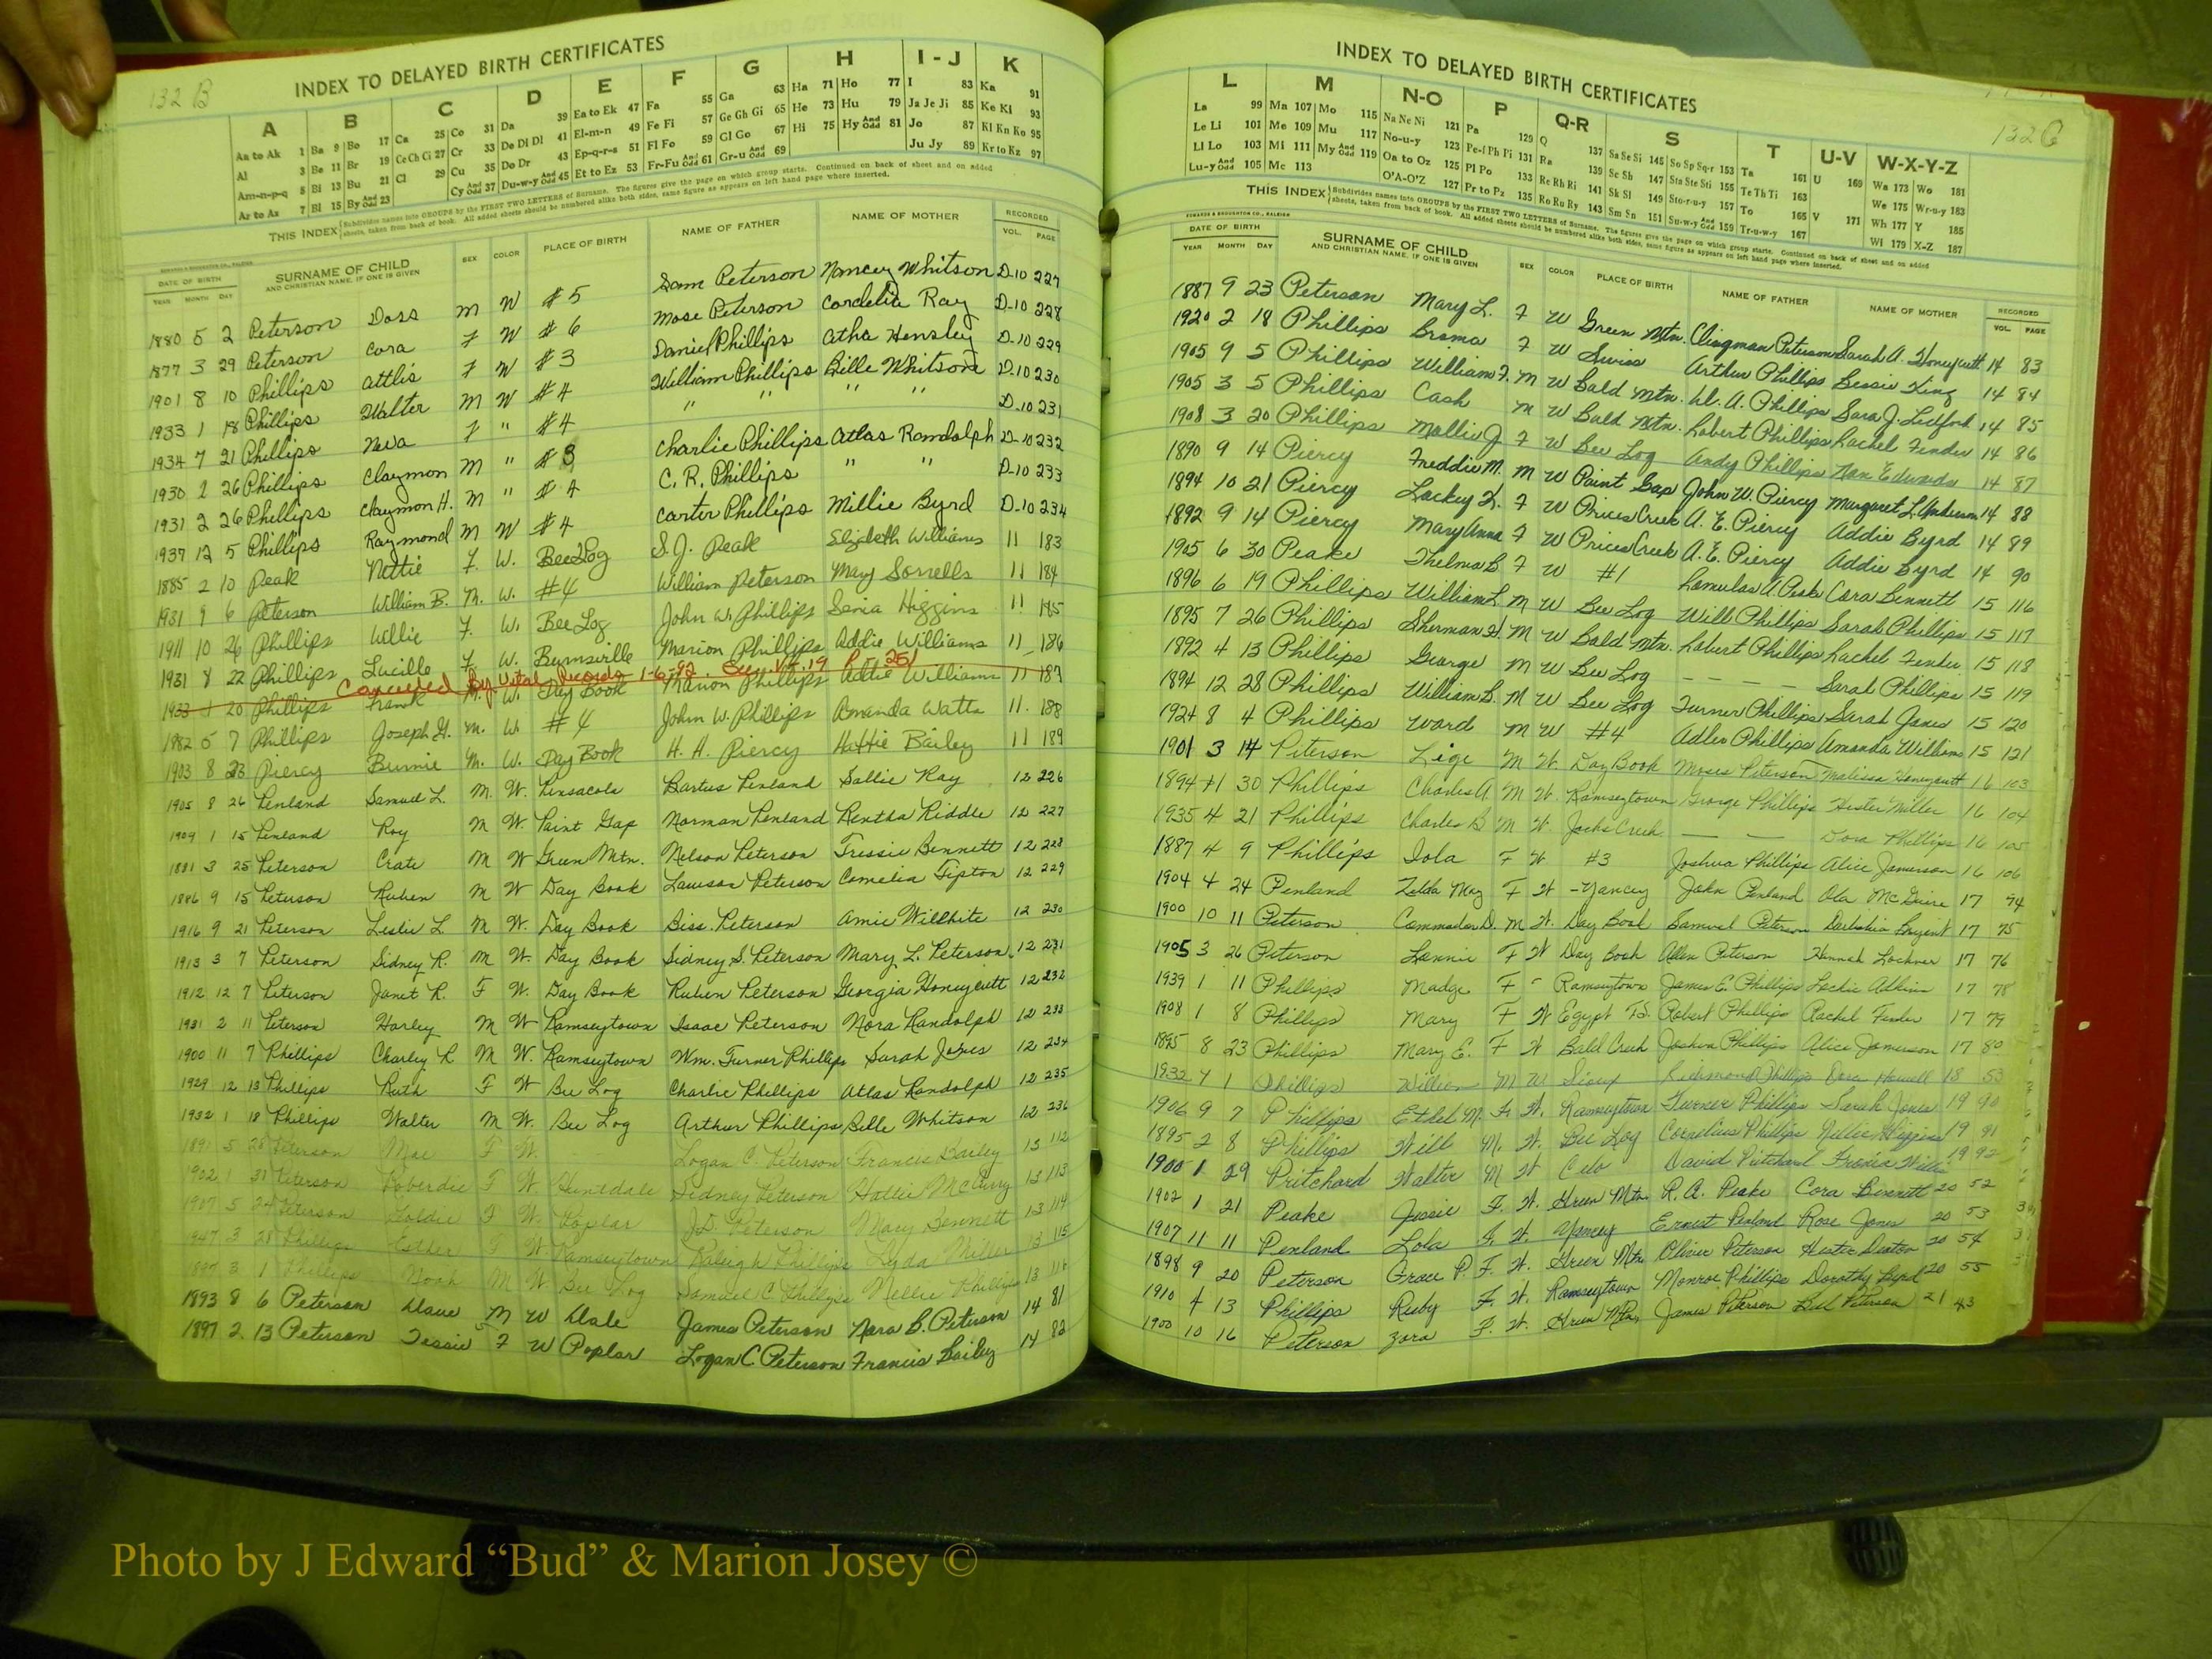 132 B
INDEX TO DELAYED BIRTH CERTIFICATES
A B C D E F G H I - J K
Aa to Ak 1 Ba 9 Bo 17 Ca 25 Co 31 Da 39 Ea to Ek 47 Fa 55 Ga 63 Ha 71 Ho 77 I 83 Ka 91
Al 3 Be 11 Br 19 Ce Ch Ci 27 Cr 33 De Di Dl 41 El-m-n 49 Fe Fi 57 Ge Gh Gi 65 He 73 Hu 79 Ja Je Ji 85 Ke Kl 93
Am-n-p-q 5 Bi 13 Bu 21 Cl 29 Cu 35 Do Dr 43 Ep-q-r-s 51 Fl Fo 59 Gl Go 67 Hi 75 Hy And Odd 81 Jo 87 Kl Kn Ko 95
Ar to Az 7 Bl 15 By And Odd 23 Cy And Odd 37 Du-w-y And Odd 45 Et to Ez 53 Fr-Fu And Odd 61 Gr-u And Odd 69 Ju Jy 89 Kr to Kz 97
THIS INDEX Subdivides names into GROUPS by the FIRST TWO LETTERS of Surname. The figures give the page on which group starts. Continued on back of sheet and on added
sheets, taken from back of book. All added sheets should be numbered alike both sides, same figure as appears on left hand page where inserted.
DATE OF BIRTH SURNAME OF CHILD SEX COLOR PLACE OF BIRTH NAME OF FATHER NAME OF MOTHER RECORDED
YEAR MONTH DAY AND CHRISTIAN NAME, IF ONE IS GIVEN VOL. PAGE
1880 5 2 Peterson Doss M W #5 Sam Peterson Nancy Whitson D-10 227
1877 3 29 Peterson Cora F W #6 Mose Peterson Cordelia Ray D-10 228
1901 8 10 Phillips Attlis F W #3 Daniel Phillips Atha Hensley D-10 229
1933 1 18 Phillips Walter M W #4 William Phillips Bille Whitson D-10 230
1934 7 21 Phillips Neva F " #4 " " " " D-10 231
1930 2 26 Phillips Claymon M " #3 Charlie Phillips Atlas Randolph D-10 232
1931 2 26 Phillips Claymon H. M " #4 C. R. Phillips " " D-10 233
1937 12 5 Phillips Raymond M W #4 Carter Phillips Millie Byrd D-10 234
1885 2 10 Peak Nettie F. W. Bee Log S. J. Peak Elizabeth Williams 11 183
1931 9 6 Peterson William B. M. W. #4 William Peterson Mary Sorrells 11 184
1911 10 26 Phillips Willie F. W. Bee Log John W. Phillips Senia Higgins 11 185
1931 8 22 Phillips Lucille F. W. Burnsville Marion Phillips Addie Williams 11 186
Canceled By Vital Records 1-6-92. See Vol. 19 P. 251
1933 20 Phillips Frank M. W. Day Book Marion Phillips Addie Williams 11 187
1882 5 7 Phillips Joseph H. M. W. #4 John W. Phillips Amanda Watts 11 188
1903 8 23 Piercy Burnie M. W. Day Book H. H. Piercy Hattie Bailey 11 189
1905 8 26 Penland Samuel L. M. W. Pensacola Bartus Penland Sallie Ray 12 226
1909 1 15 Penland Roy M W. Paint Gap Norman Penland Rentha Riddle 12 227
1881 3 25 Peterson Crate M W Green Mtn. Nelson Peterson Tressie Bennett 12 228
1886 9 15 Peterson Ruben M W Day Book Lawson Peterson Cornelia Tipton 12 229
1916 9 21 Peterson Leslie L M W. Day Book Biss. Peterson Amie Willhite 12 230
1913 3 7 Peterson Sidney R. M W. Day Book Sidney S. Peterson Mary L. Peterson 12 231
1912 12 7 Peterson Janet R. F W. Day Book Ruben Peterson Georgia Honeycutt 12 232
1931 2 11 Peterson Harley M W Ramseytown Isaac Peterson Nora Randolph 12 233
1900 11 7 Phillips Charley R M W. Ramseytown Wm. Turner Phillips Sarah Jones 12 234
1929 12 13 Phillips Ruth F W Bee Log Charlie Phillips Atlas Randolph 12 235
1932 1 18 Phillips Walter M W. Bee Log Arthur Phillips Belle Whitson 12 236
1891 5 28 Peterson Mae F W. Logan C. Peterson Francis Bailey 13 112
1902 1 31 Peterson F W. Huntdale Sidney Peterson Hattie McCurry 13 113
1907 5 24 Peterson Goldie F W. Poplar J.D. Peterson Mary Bennett 13 114
1947 3 28 Phillips Esther F W. Ramseytown Raleigh Phillips Lyda Miller 13 115
1897 3 1 Phillips Noah M W. Bee Log Samuel C Phillips Nellie Phillips 13 116
1893 8 6 Peterson Dave M W Dale James Peterson Nora B. Peterson 14 81
1897 2 13 Peterson Tessie F W Poplar Logan C. Peterson Francis Bailey 14 82
132 C
INDEX TO DELAYED BIRTH CERTIFICATES
L M N-O P Q-R S T U-V W-X-Y-Z
La 99 Ma 107 Mo 115 Na Ne Ni 121 Pa 129 Q 137 Sa Se Si 145 So Sp Sq-r 153 Ta 161 U 169 Wa 173 Wo 181
Le Li 101 Me 109 Mu 117 No-u-y 123 Pe-f Ph Pi 131 Ra 139 Sc Sh 147 Sta Ste Sti 155 Te Th Ti 163 We 175 Wr-u-y 183
Ll Lo 103 Mi 111 My And Odd 119 Oa to Oz 125 Pl Po 133 Re Rh Ri 141 Sk Sl 149 Sto-r-u-y 157 To 165 V 171 Wh 177 Y 185
Lu-y And Odd 105 Mc 113 O'A-O'Z 127 Pr to Pz 135 Ro Ru Ry 143 Sm Sn 151 Su-w-y And Odd 159 Tr-u-w-y 167 Wi 179 X-Z 187
THIS INDEX Subdivides names into GROUPS by the FIRST TWO LETTERS of Surname. The figures give the page on which group starts. Continued on back of sheet and on added
sheets, taken from back of book. All added sheets should be numbered alike both sides, same figure as appears on left hand page where inserted.
EDWARDS & BROUGHTON CO., RALEIGH
DATE OF BIRTH SURNAME OF CHILD SEX COLOR PLACE OF BIRTH NAME OF FATHER NAME OF MOTHER RECORDED
YEAR MONTH DAY AND CHRISTIAN NAME, IF ONE IS GIVEN VOL. PAGE
1887 9 23 Peterson Mary L. F W Green Mtn. Clingman Peterson Sarah A. Honeycutt 14 83
1920 2 18 Phillips Broma F W Swiss Arthur Phillips Bessie King 14 84
1905 9 5 Phillips William F. M W Bald Mtn. W. A. Phillips Sara J. Ledford 14 85
1905 3 5 Phillips Cash M W Bald Mtn. Robert Phillips Rachel Fender 14 86
1908 3 20 Phillips Mollie J. F W Bee Log Andy Phillips Nan Edwards 14 87
1890 9 14 Piercy Freddie M. M W Paint Gap John W. Piercy Margaret L. Anderson 14 88
1894 10 21 Piercy Lockey L. F W Prices Creek A. E. Piercy Addie Byrd 14 89
1892 9 14 Piercy Mary Anna F W Prices Creek A. E. Piercy Addie Byrd 14 90
1905 6 30 Peake Thelma B. F W #1 Romulus A. Peake Cora Bennett 15 116
1896 6 19 Phillips William L. M W Bee Log Will Phillips Sarah Phillips 15 117
1895 7 26 Phillips Sherman H. M W Bald Mtn. Robert Phillips Rachel Fender 15 118
1892 4 13 Phillips George M W Bee Log - - - - Sarah Phillips 15 119
1894 12 28 Phillips William B. M W Bee Log Turner Phillips Sarah Jones 15 120
1924 8 4 Phillips Ward M W #4 Adler Phillips Amanda Williams 15 121
1901 3 14 Peterson Lige M W. Day Book Moses Peterson Malissa Honeycutt 16 103
1894 11 30 Phillips Charles A. M W. Ramseytown George Phillips Hester Miller 16 104
1935 4 21 Phillips Charles B M W. Jacks Creek — — Dora Phillips 16 105
1887 4 9 Phillips Iola F W #3 Joshua Phillips Alice Jamerson 16 106
1904 4 24 Penland Zelda May F W - Yancey John Penland Ola McGuire 17 74
1900 10 11 Peterson Commodore D. M W. Day Book Samuel Peterson 17 75
1905 3 26 Peterson Lannie F W Day Book Allen Peterson Hannah Lockner 17 76
1939 1 11 Phillips Madge F - Ramseytown James E. Phillips Lockie Adkins 17 78
1908 1 8 Phillips Mary F W Egypt TS. Robert Phillips Rachel Fender 17 79
1895 8 23 Phillips Mary E. F W Bald Creek Joshua Phillips Alice Jamerson 17 80
1932 7 1 Phillips William M W Sioux Phillips Howell 18 53
1906 9 7 Phillips Ethel M. F. W. Ramseytown Turner Phillips Sarah Jones 19 90
1895 2 8 Phillips Will M. W. Bee Log Cornelius Phillips Nellie Higgins 19 91
1900 1 29 Pritchard Walter M W Celo David Pritchard Willis 19 92
1902 1 21 Peake Jessie F. W. Green Mtn. R. A. Peake Cora Bennett 20 52
1907 11 11 Penland Lola F. W. Yancey Ernest Penland Rose Jones 20 53
1898 9 20 Peterson Grace P. F. W. Green Mtn. Oliver Peterson Hester Deaton 20 54
1910 4 13 Phillips Ruby F. W. Ramseytown Monroe Phillips Dorothy Byrd 20 55
1900 10 16 Peterson Zora F. W. Green Mtn. James Peterson Peterson 21 43
Photo by J Edward “Bud” & Marion Josey ©